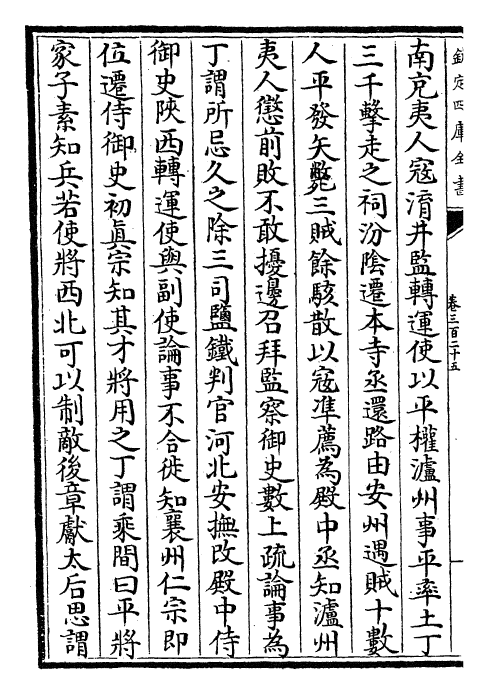 欽定四庫全書
卷三百二十五
南充夷人寇淯井監轉運使以平權瀘州事平率土丁
三千擊走之祠汾隂遷本寺丞還路由安州遇賊十數
人平發矢斃三賊餘駭散以寇凖薦為殿中丞知瀘州
夷人懲前敗不敢擾邊召拜監察御史數上疏論事為
丁謂所忌久之除三司鹽鐵判官河北安撫改殿中侍
御史陜西轉運使與副使論事不合徙知襄州仁宗即
位遷侍御史初真宗知其才將用之丁謂乘間曰平將
家子素知兵若使將西北可以制敵後章獻太后思謂